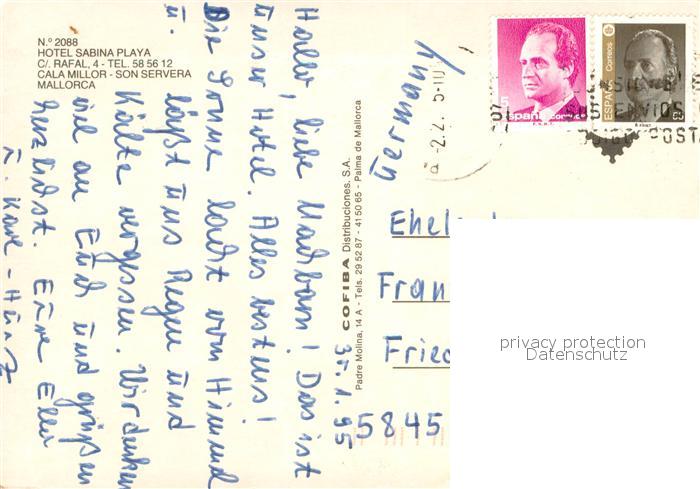 N.º 2088
HOTEL SABINA PLAYA
C/. RAFAL, 4 - TEL. 58 56 12
CALA MILLOR - SON SERVERA
MALLORCA
Hallo, liebe Nachbarn! Das ist
unser Hotel. Alles bestens!
Die Sonne lacht vom Himmel
u. läßt uns Regen und
Kälte vergessen. Wir denken
viel an Euch und grüßen
herzlichst. Eure Ellen
u. Karl-Heinz
31.1.95
COFIBA Distribuciones, S.A.
Padre Molina, 14 A - Tels. 29 52 87 - 41 50 65 - Palma de Mallorca
Germany
España correos
ESPAÑA Correos
2.2.
Ehel
Fran
Fried
5845
privacy protection
Datenschutz